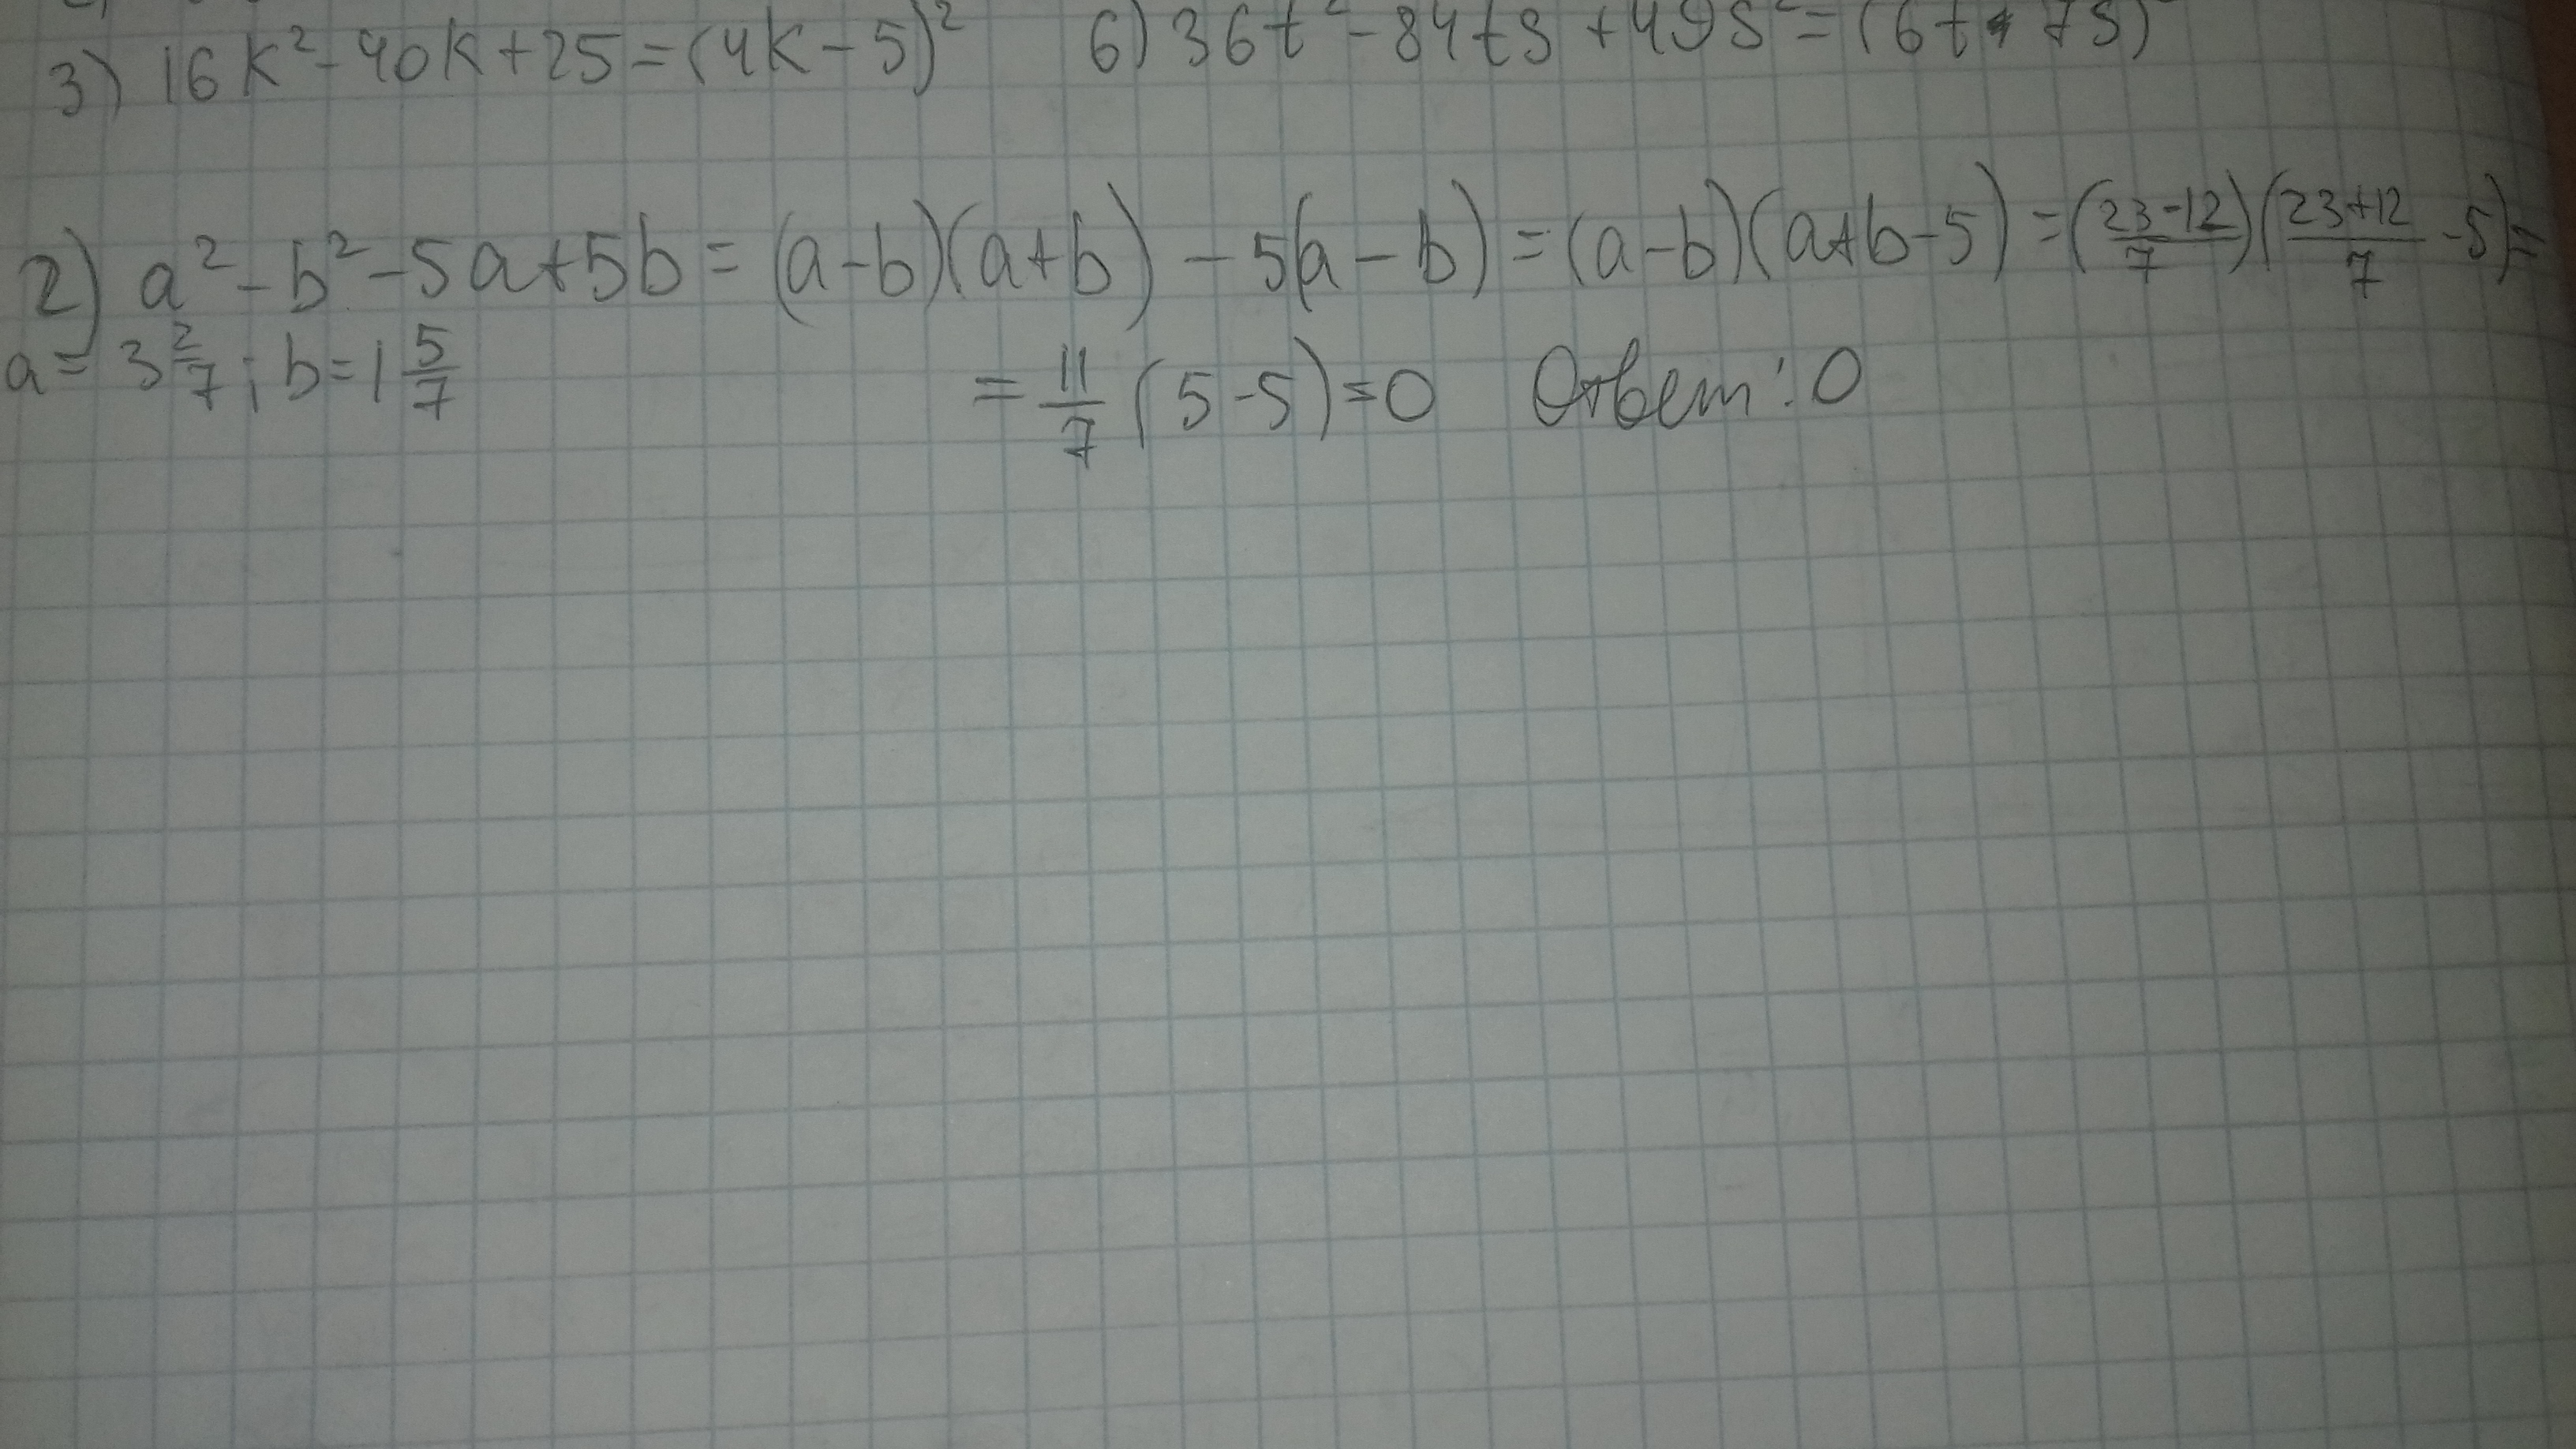 3) 16k² - 40k + 25 = (4k - 5)² 6) 36t² - 84ts + 49s² = (6t - 7s)
2) a² - b² - 5a + 5b = (a - b)(a + b) - 5(a - b) = (a - b)(a + b - 5) = ((23 - 12)/7)((23 + 12)/7 - 5) =
a = 3 2/7; b = 1 5/7 = 11/7 (5 - 5) = 0 Ответ: 0